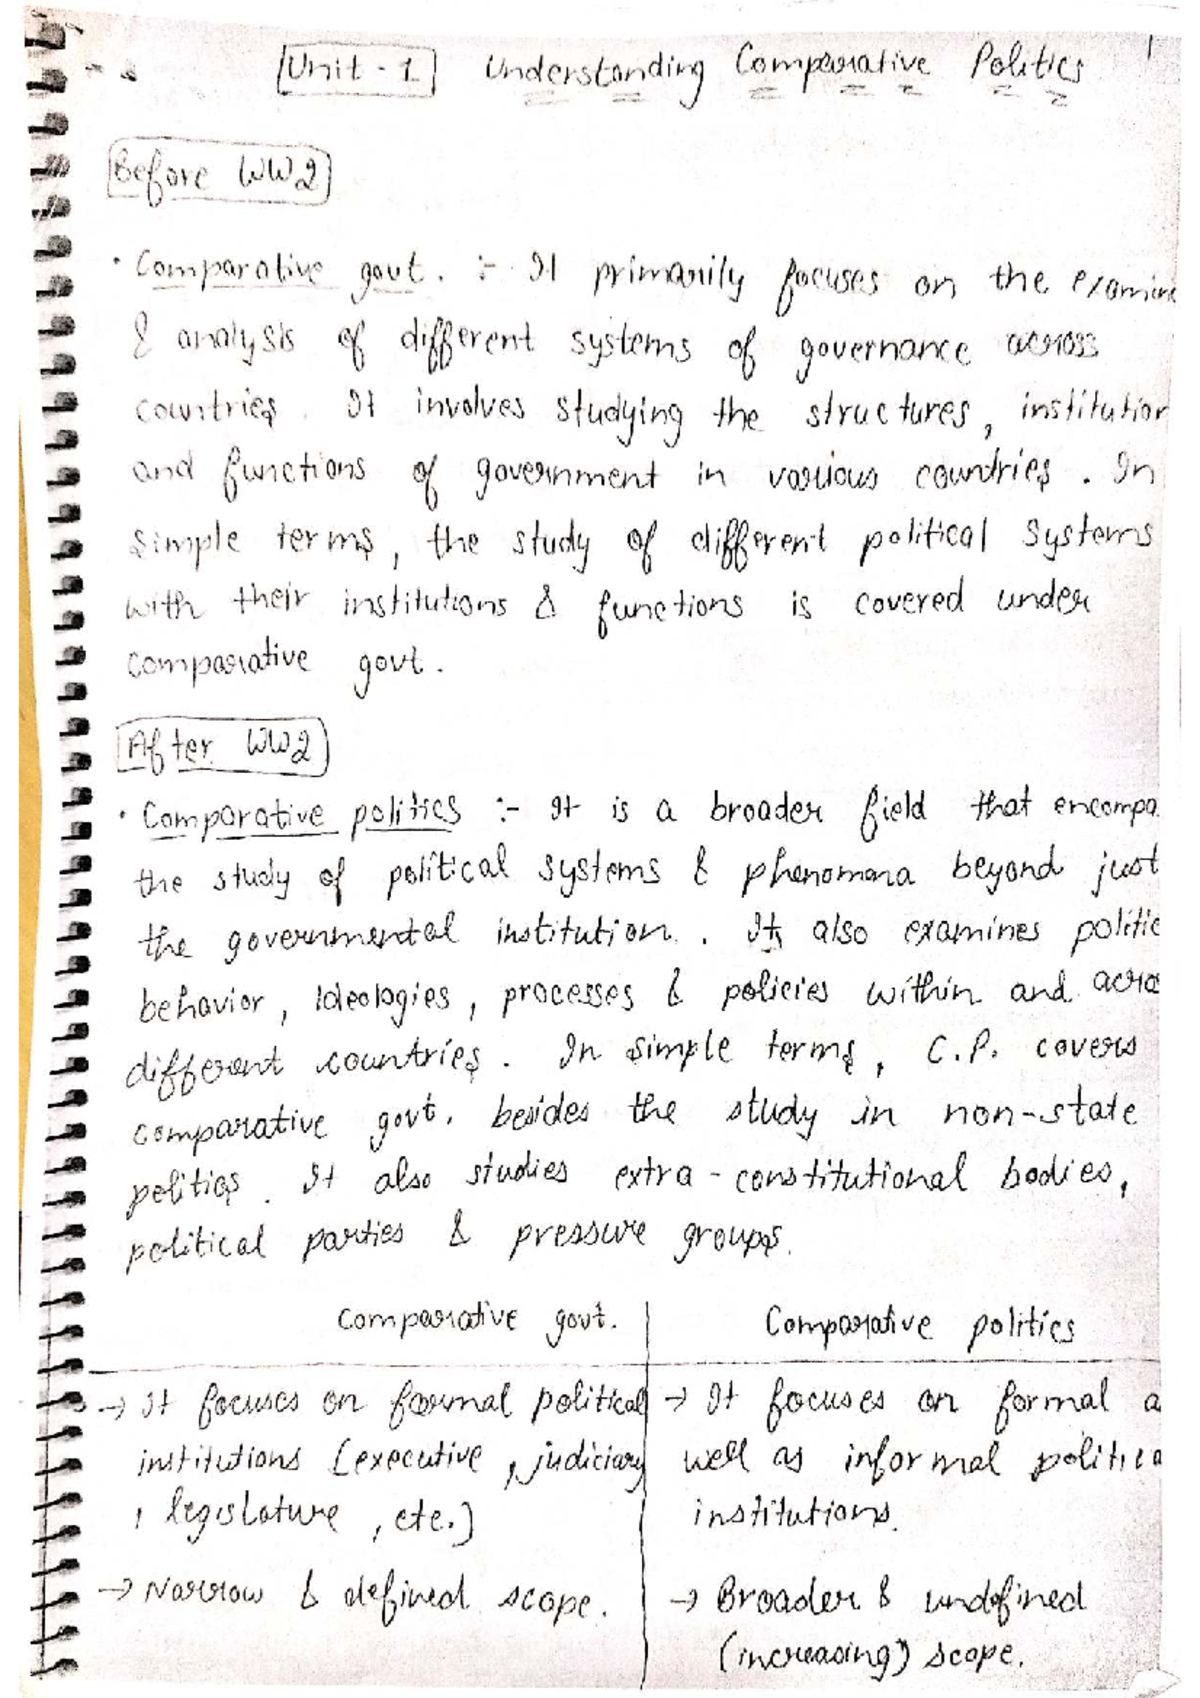 Unit - 1 Understanding Comparative Politics 1
Before WW2
· Comparative govt. :- It primarily focuses on the examin
& analysis of different systems of governance across
countries. It involves studying the structures, institution
and functions of government in various countries. In
simple terms, the study of different political systems
with their institutions & functions is covered under
comparative govt.
After WW2
· Comparative politics :- It is a broader field that encompa
the study of political systems & phenomena beyond just
the governmental institution. It also examines politic
behavior, ideologies, processes & policies within and acro
different countries. In simple terms, C.P. covers
comparative govt. besides the study in non-state
politics. It also studies extra-constitutional bodies,
political parties & pressure groups.
Comparative govt. Comparative politics
→ It focuses on formal political
institutions [executive, judiciary
, legislature, etc.]
→ Narrow & defined scope.
→ It focuses on formal a
well as informal politica
institutions.
→ Broader & undefined
(increasing) scope.